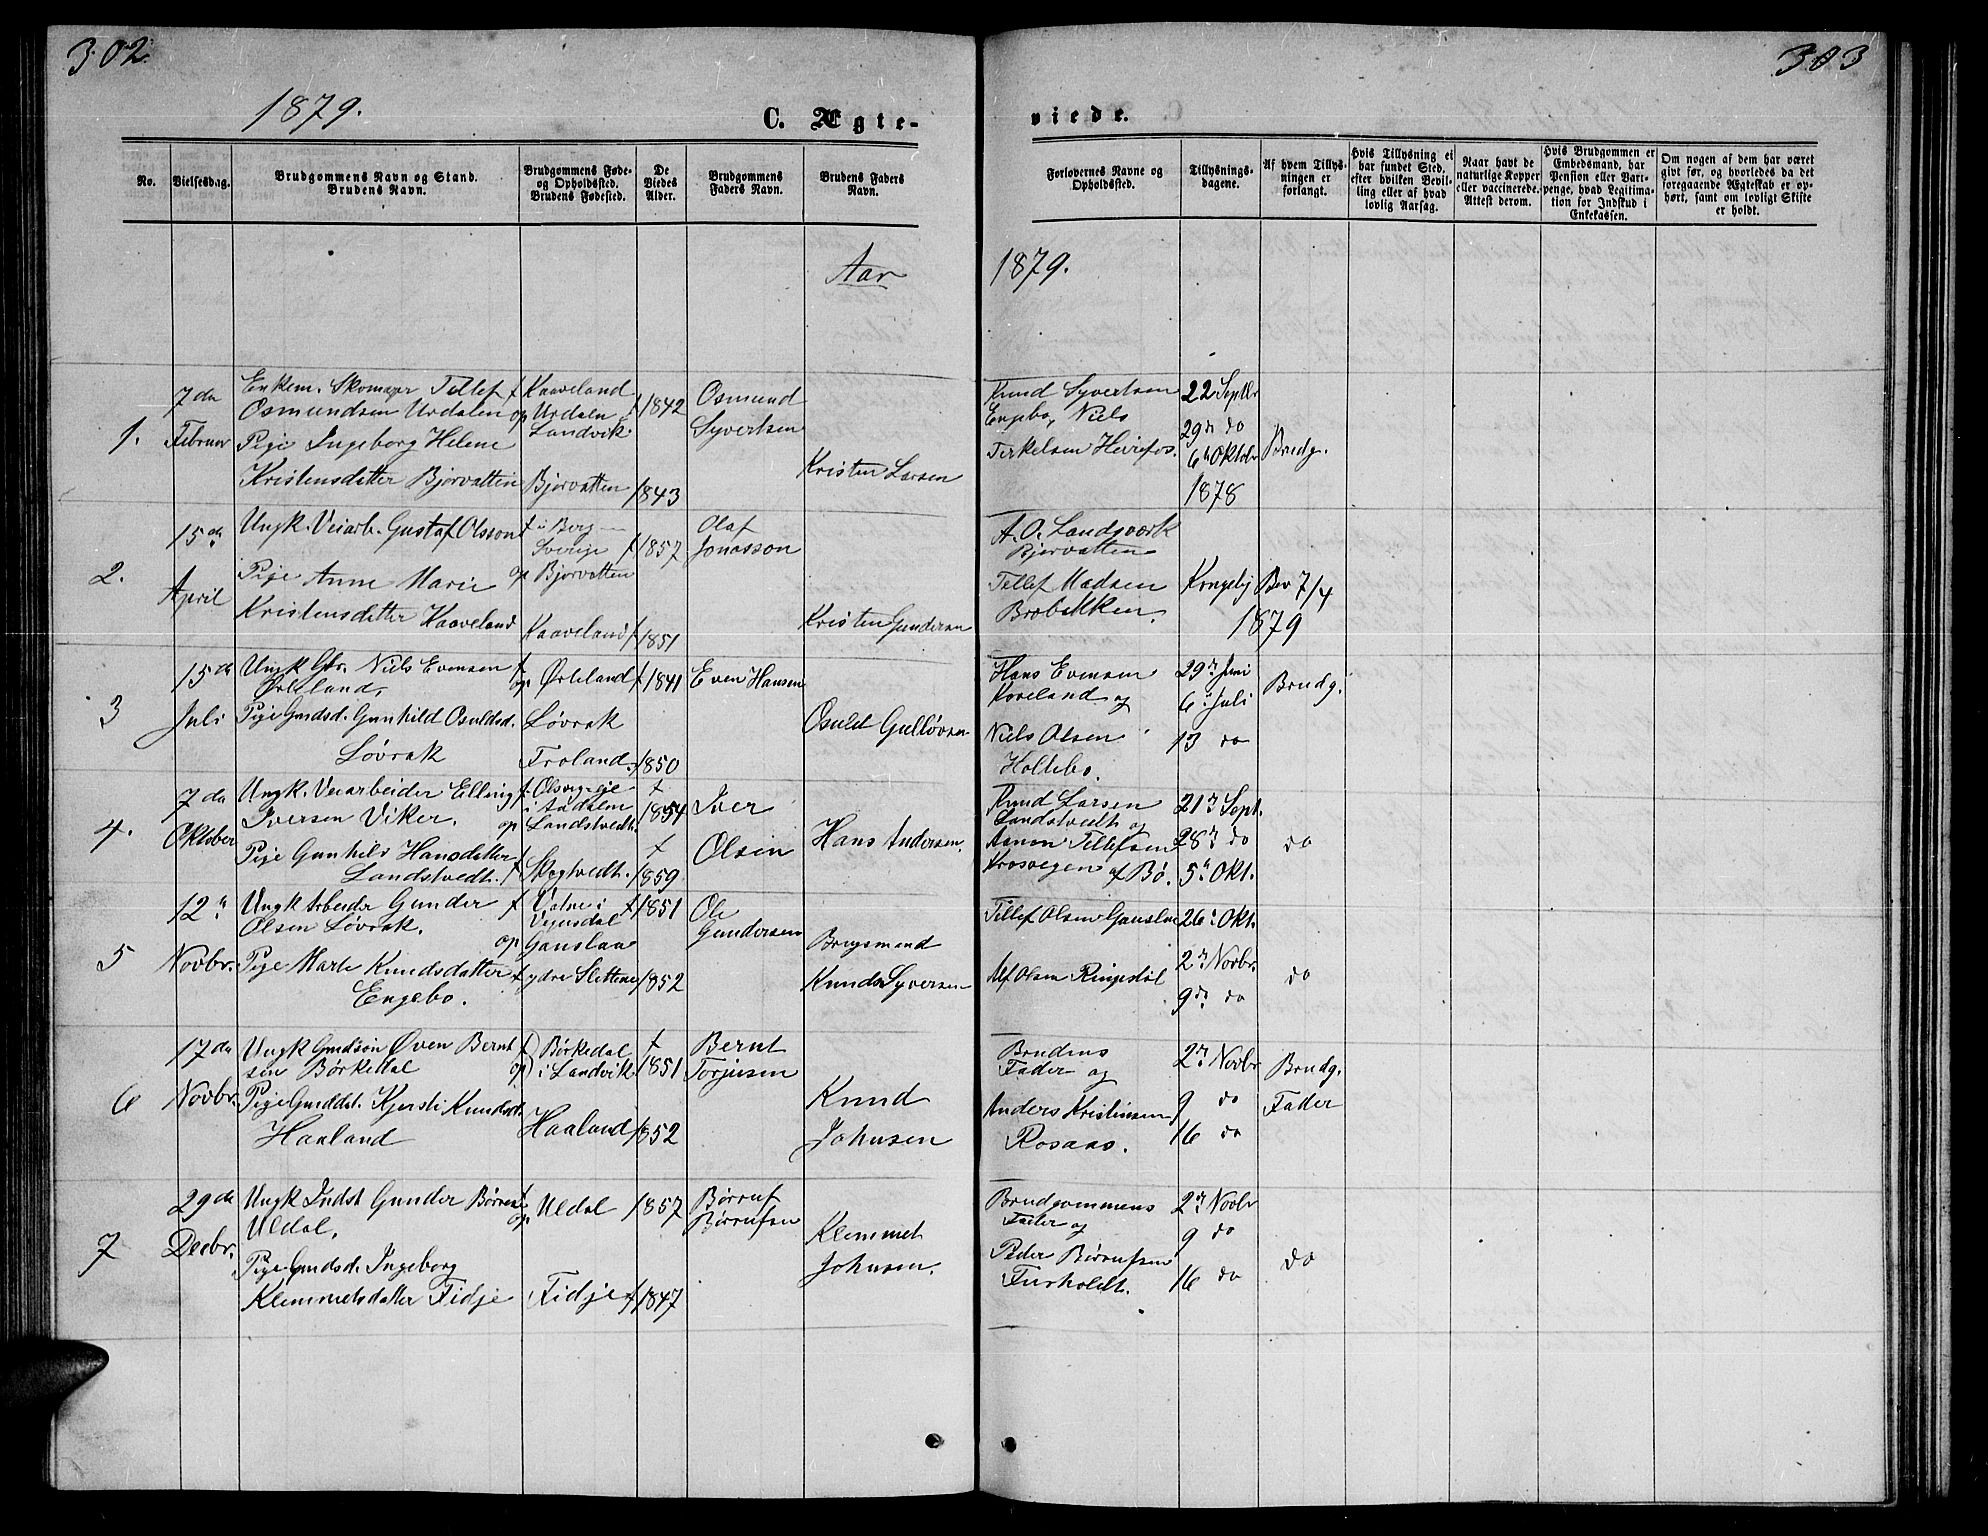 302.
303
1879.
C. Ægte-
viede.
No.
Vielsesdag.
Brudgommens Navn og Stand.
Brudens Navn.
Brudgommens Føde-
og Opholdssted.
Brudens Fødested.
De
Viedes
Alder.
Brudgommens
Faders Navn.
Brudens Faders
Navn.
Forlovernes Navne og
Opholdssted.
Tillysnings-
dagene.
Af hvem Tillys-
ningen er
forlangt.
Hvis Tillysning ei
har fundet Sted,
efter hvilken Bevil-
ling eller af hvad
lovlig Aarsag.
Naar havt de
naturlige Kopper
eller vaccinerede.
Attest derom.
Hvis Brudgommen er
Embedsmand, har
Pension eller Vart-
penge, hvad Legitima-
tion for Indskud i
Enkekassen.
Om nogen af dem har været
givt før, og hvorledes da det
foregaaende Ægteskab er op-
hørt, samt om lovligt Skifte
er holdt.
Aar
1879.
1.
7de
Februar
Enkem. Skomager Tellef
Osmundsen Urdalen
Pige Ingeborg Helene
Kristensdatter Bjorvatten
f Kaaveland
op Urdalen
Landvik
Bjorvatten
f 1842
1843
Osmund
Syvertsen
Kristen Larsen
Knud Syvertsen
Engebo, Niels
Terkelsen Heirefos.
22 Septbr
29de do
6te Oktobr
1878
Brudg.
2.
15de
April
Ungk. Veiarb. Gustaf Olsson
Pige Anne Marie
Kristensdatter Kaaveland
f i Berg
Sverige
op Bjorvatten
Kaaveland
f 1857
f 1851
Olaf
Jonasson
Kristen Gundersen
A. O. Landsværk
Bjorvatten
Tellef Madsen
Brobekken.
Kongelig Bev 7/4
1879
3
15de
Juli
Ungk. Gbr. Niels Evensen
Øveland,
Pige Gaardsd. Gunhild Osuldsd.
Løvrak
f
op Øveland
Løvrak
Froland.
f 1841
1850
Even Hansen
Osuld Gulløvsen
Hans Evensen
Koveland og
Niels Olsen
Holtebo.
29de Juni
6te Juli
13 do
Brudg.
4.
7de
Oktober
Ungk. Veiarbeider Elling
Iversen Viker.
Pige Gunhild Hansdatter
Landstvedt.
f
i Aadalen
op Landstvedt.
f Skogtvedt.
f
1854
f
1859
Iver
Olsen
Hans Andersen.
Knud Larsen
Landstvedt og
Aanon Tellefsen
af Bø.
21de Sept.
28de do
5te Okt.
do
5
12te
Novbr.
Ungk Arbeider Gunder
Olsen Løvrak.
Pige Marte Knudsdatter
Engebo.
f Vatne i
Vegusdal
op Gauslaa
f ydre Slettene
f 1851
1852
Ole
Gundersen
Brugsmand
Knud Syversen
Tellef Olsen Gauslaa
Alf Olsen Ringestøl
26te Okt.
2de Novbr.
9de do
do
6
17de
Novbr.
Ungk Gaardsøn Øven Bernt
sen Børkedal
Pige Gaarddat. Kjersti Knudsdt.
Haaland
f Børkedal
op i Landvik
Haaland
f
1851
1852
Bernt
Torjusen
Knud
Johnsen
Brudens
Fader og
Anders Kristensen
Rosaas.
2de Novbr
9 do
16 do
Brudg.
Fader
7
29de
Decbr.
Ungk Indst Gunder Børres
Uldal.
Pige Gaardsd. Ingeborg
Klemmetsdatter Fidje
f
op Uldal
Fidje
1857
f 1847
Børruf
Børrufsen
Klemmet
Johnsen.
Brudgommens
Fader og
Peder Børrufsen
Furholdt.
2de Novbr
9 do
16 do
do